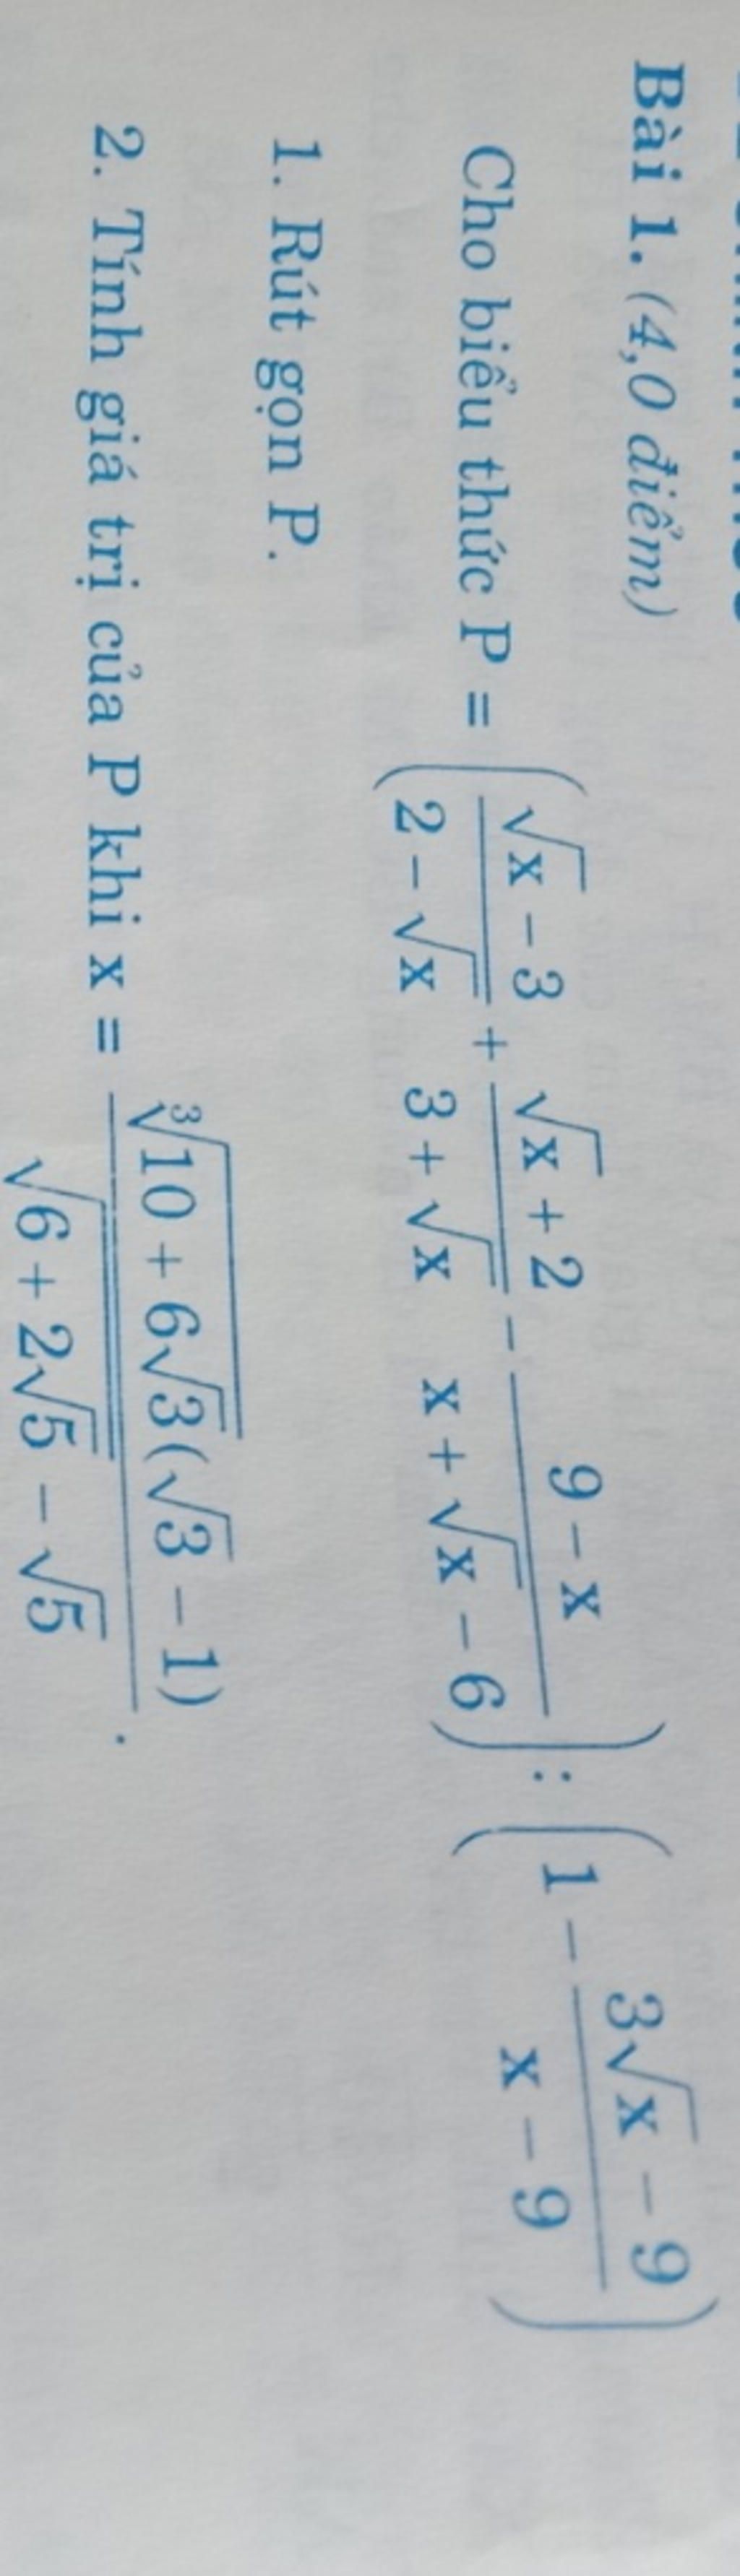 Bài 1. (4,0 điểm)
Cho biểu thức P = ( (√x − 3)/(2 − √x) + (√x + 2)/(3 + √x) − (9 − x)/(x + √x − 6) ) : ( 1 − (3√x − 9)/(x − 9) )
1. Rút gọn P.
2. Tính giá trị của P khi x = (∛(10 + 6√3)(√3 − 1))/(√(6 + 2√5) − √5).